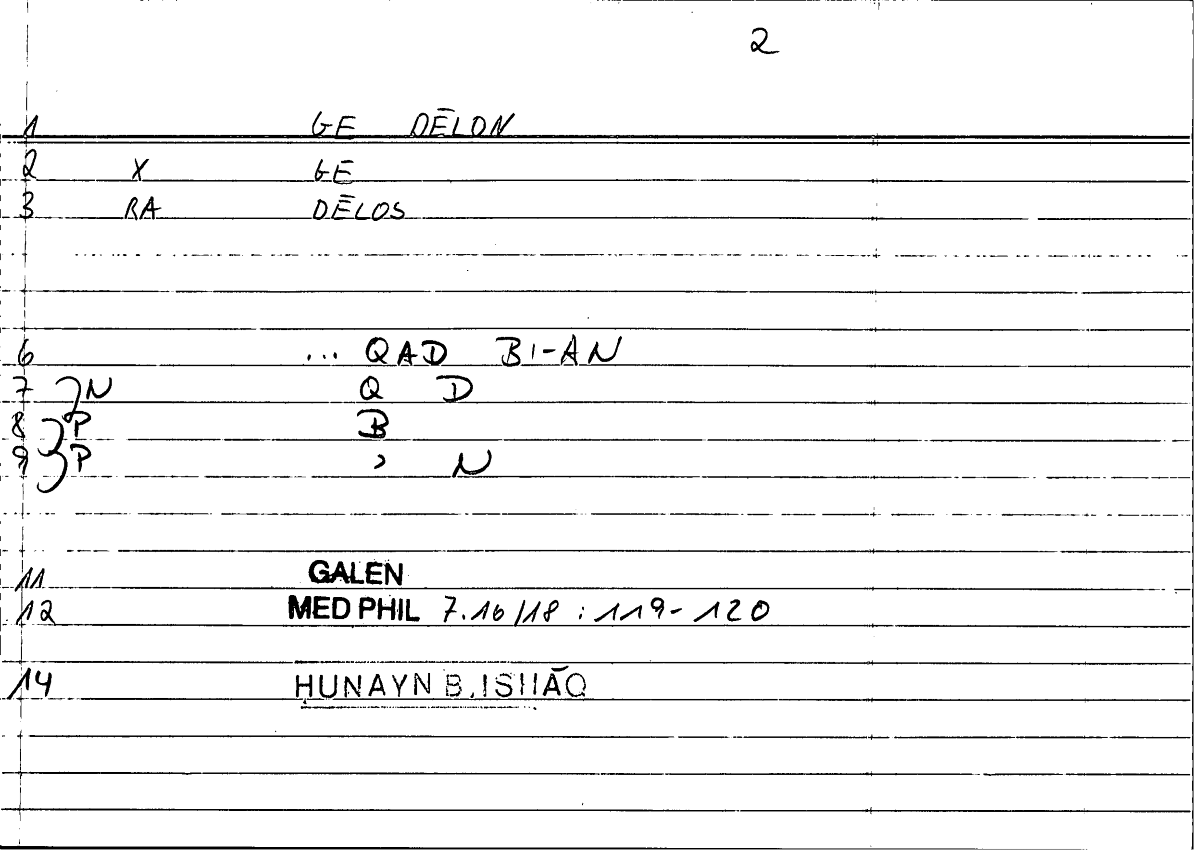 2
1 GE DĒLON
2 X GE
3 RA DĒLOS
6 ... QAD BI-AN
7 }N Q D
8 }P B
9 }P › N
11 GALEN
12 MED PHIL 7.16/18 : 119-120
14 HUNAYN B. ISḤĀQ